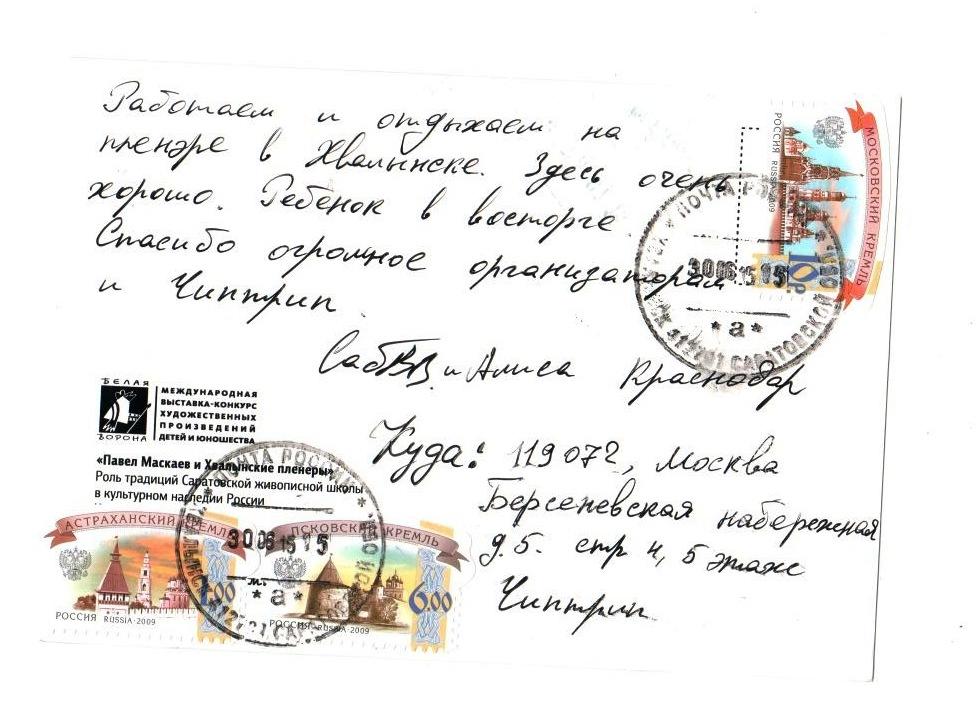 Работаем и отдыхаем на
пленэре в Хвалынске. Здесь очень
хорошо. Ребенок в восторге
Спасибо огромное организаторам
и Чиптрип
СабВВ. и Алиса Краснодар
Куда: 119072, Москва
Берсеневская набережная
д.5. стр 4, 5 этаж
Чиптрип
БЕЛАЯ
ВОРОНА
МЕЖДУНАРОДНАЯ
ВЫСТАВКА-КОНКУРС
ХУДОЖЕСТВЕННЫХ
ПРОИЗВЕДЕНИЙ
ДЕТЕЙ И ЮНОШЕСТВА
«Павел Маскаев и Хвалынские пленеры»
Роль традиций Саратовской живописной школы
в культурном наследии России
РОССИЯ RUSSIA·2009
МОСКОВСКИЙ КРЕМЛЬ
10 Р.
ПОЧТА РОССИИ
САРАТОВСКОЙ
30 06 15 15
*а*
АСТРАХАНСКИЙ КРЕМЛЬ
РОССИЯ RUSSIA·2009
ПСКОВСКИЙ КРЕМЛЬ
6.00
РОССИЯ RUSSIA·2009
ПОЧТА РОССИИ
30 06 15 15
*а*